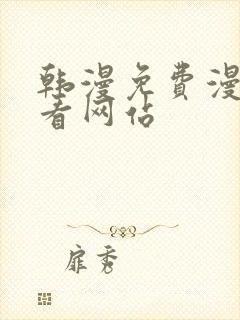 韩漫免费漫
看网站
扉秀